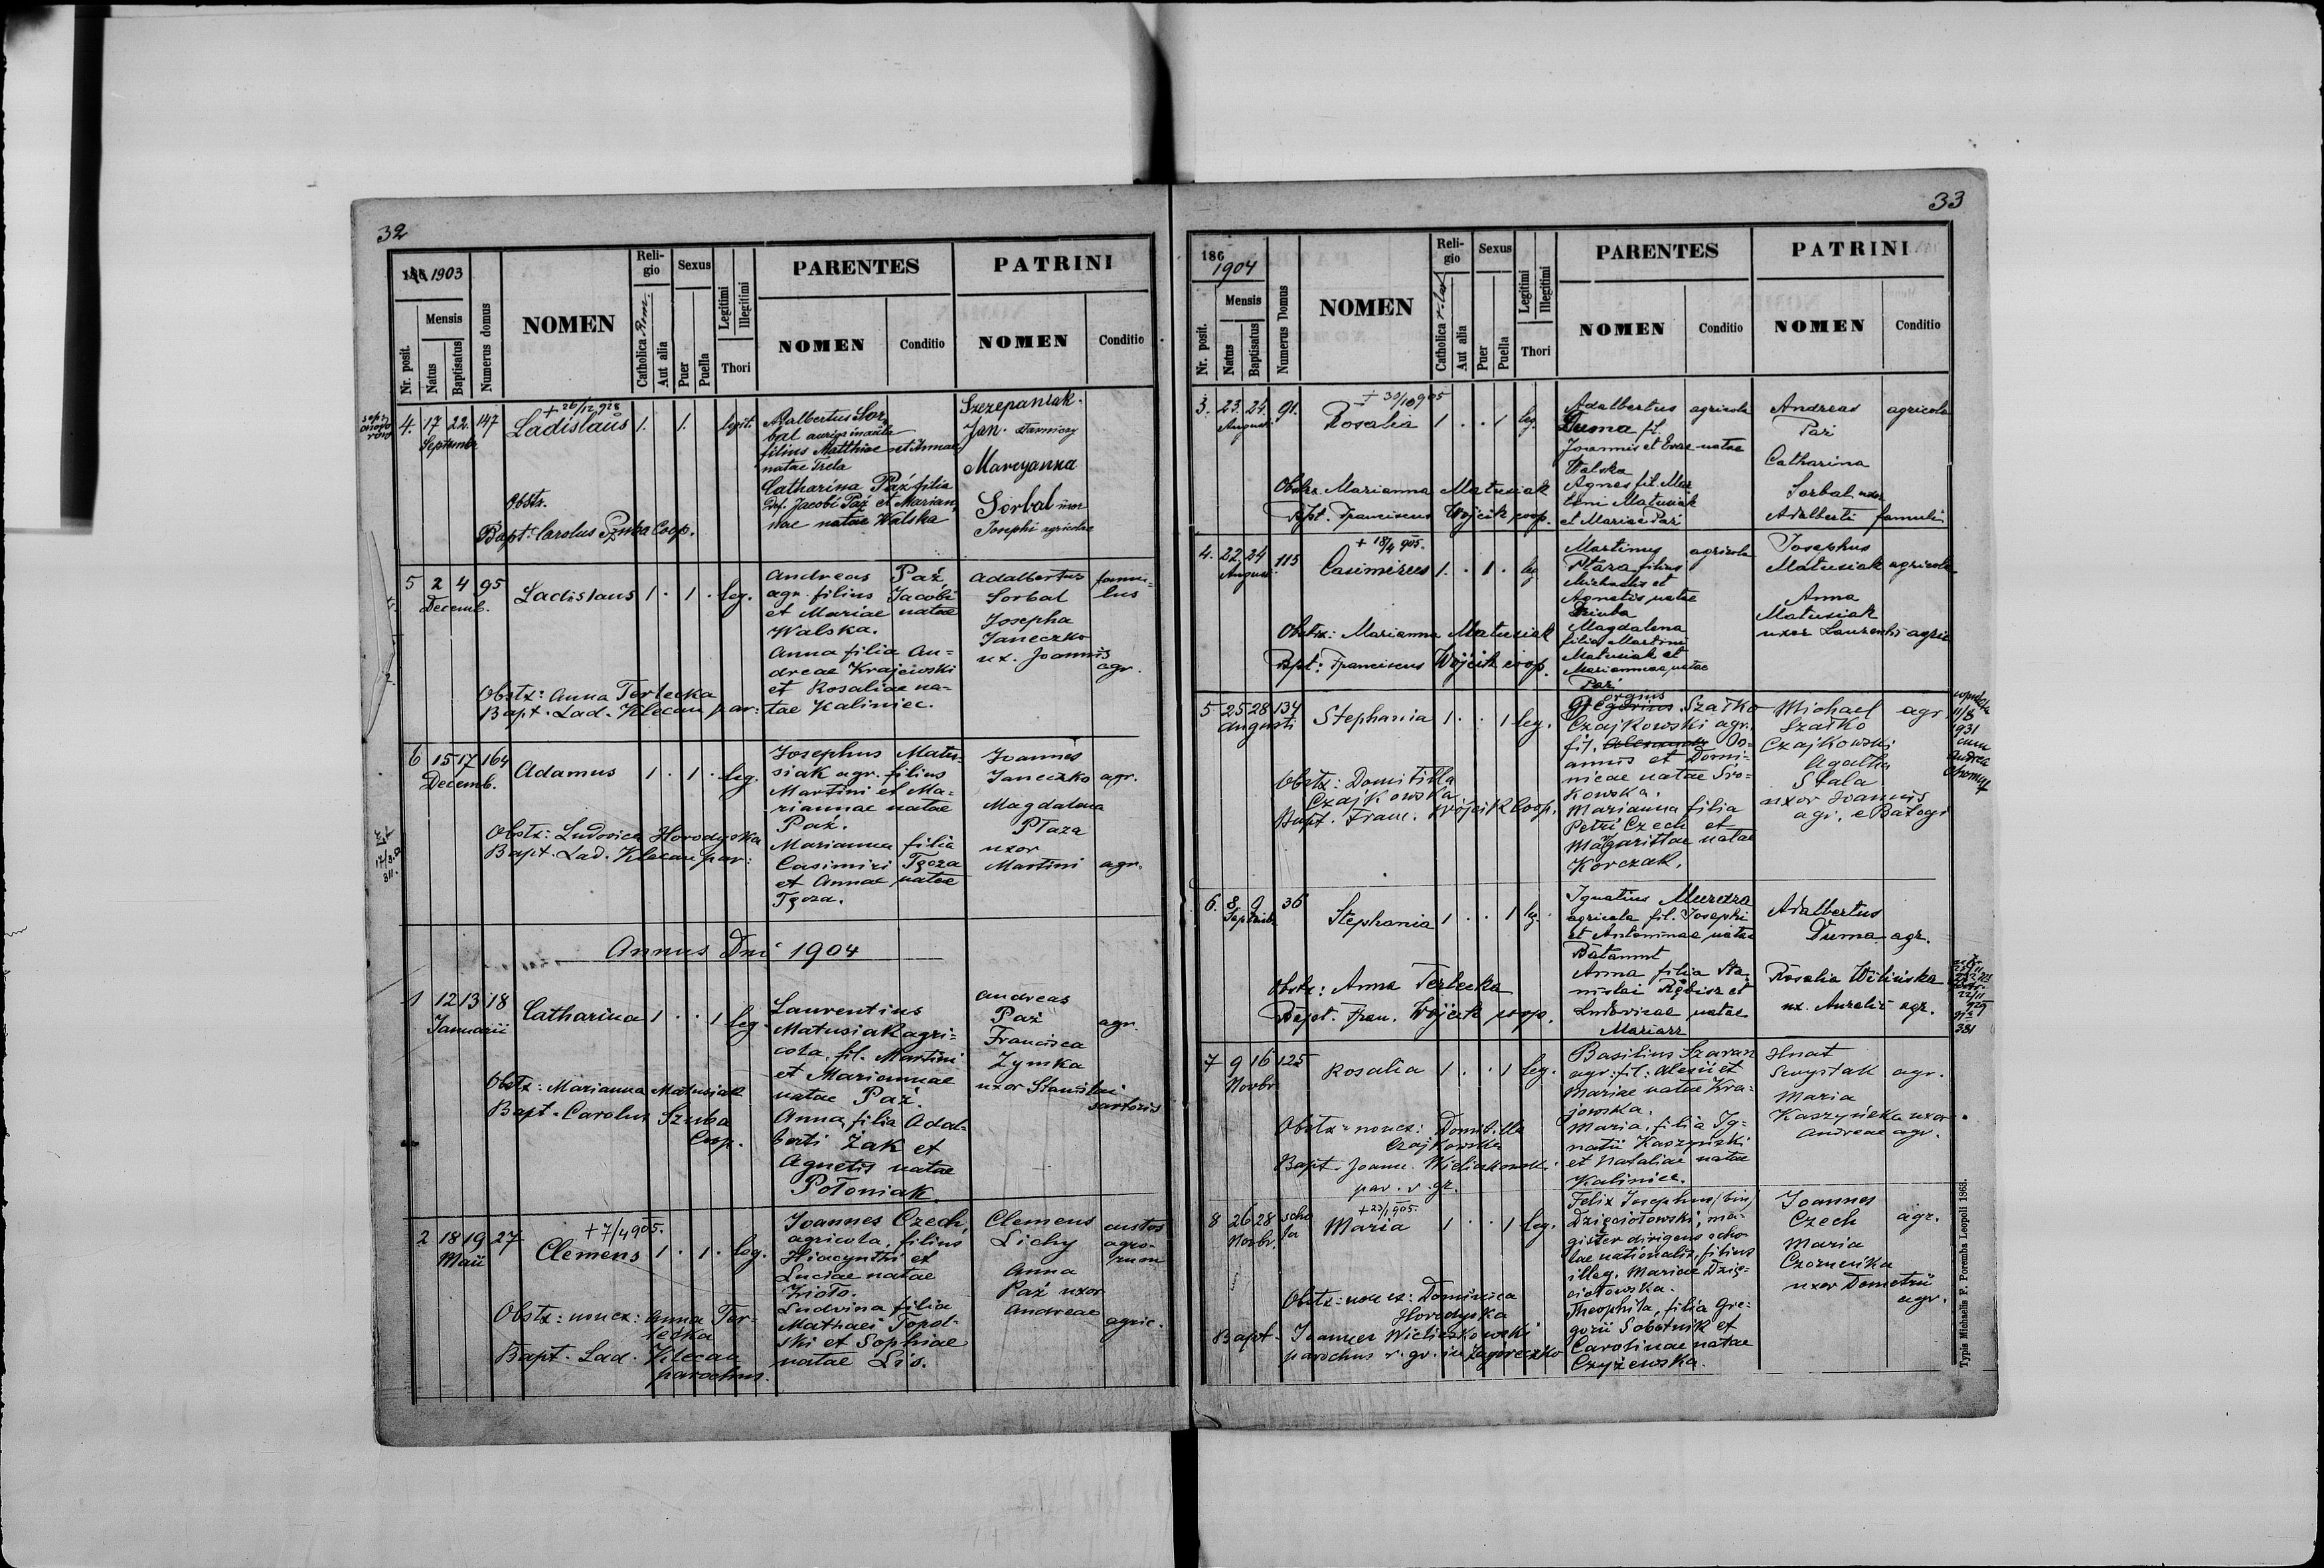 32
186 1903
Nr. posit.
Mensis
Natus
Baptisatus
Numerus domus
NOMEN
Religio
Catholica Rom
Aut alia
Sexus
Puer
Puella
Legitimi
Illegitimi
Thori
PARENTES
NOMEN
Conditio
PATRINI
NOMEN
Conditio
4. 17 22. 147
Septembr
+ 26/12 928
Ladislaus 1. 1. legit.
Obstr.
Bapt: Carolus Szuba Coop.
Adalbertus Sor
bal auriga in aula
filius Matthiae et Annae
natae Trela
Catharina Paź filia
def. Jacobi Paź et Marian
nae natae Walska
Szczepaniak
Jan
Maryanna
Sorbal uxor
Josephi agricolae
5 2 4 95
Decemb.
Ladislaus 1 . 1 . leg.
Obstx: Anna Terlecka
Bapt. Lad. Klecan par:
Andreas Paź
agr. filius Jacobi
et Mariae natae
Walska.
Anna filia An=
dreae Krajewski
et Rosaliae na=
tae Kaliniec.
Adalbertus famu=
Sorbal lus
Josepha
Janeczko
ux. Joannis
agr.
6 15 17 164
Decemb.
Adamus 1 . 1 . leg.
Obstx: Ludovica Horodyska
Bapt. Lad. Klecan par:
Josephus Matu=
siak agr. filius
Martini et Ma=
riannae natae
Paź.
Marianna filia
Casimiri Tęcza
et Annae natae
Tęcza.
Joannes
Janeczko agr.
Magdalena
Płaza
uxor
Martini agr.
Annus Dni 1904
1 12 13 18
Januarii
Catharina 1 . . 1 leg.
Obstx: Marianna Matusiak
Bapt. Carolus Szuba
Coop.
Laurentius
Matusiak agri=
cola, fil. Martini
et Mariannae
natae Paź.
Anna, filia Adal=
berti Żak et
Agnetis natae
Połoniak.
Andreas
Paź agr.
Francisca
Zymka
uxor Stanislai
sartoris
2 18 19 27
Maii
+ 7/4 905.
Clemens 1 . 1 . leg.
Obstx: non ex: Anna Ter=
lecka
Bapt. Lad. Klecan
parochus.
Joannes Czech,
agricola, filius
Hiacynthi et
Luciae natae
Zioło.
Ludvina filia
Mathaei Topol=
ski et Sophiae
natae Lis.
Clemens custos
Lichy agro=
rum
Anna
Paź uxor
Andreae
agric.
33
186
1904
Nr. posit.
Mensis
Natus
Baptisatus
Numerus Domus
NOMEN
Religio
Catholica
Aut alia
Sexus
Puer
Puella
Legitimi
Illegitimi
Thori
PARENTES
NOMEN
Conditio
PATRINI
NOMEN
Conditio
3. 23. 24. 91.
August.
+ 30/10 905
Rosalia 1 . . 1 leg.
Obstx. Marianna Matusiak
Bapt. Franciscus Wójcik coop.
Adalbertus agricola
Duma fil.
Joannis et Evae natae
Walska
Agnes fil. Mar
tini Matusiak
et Mariae Paź
Andreas agricola
Paź
Catharina
Sorbal uxor
Adalberti famuli
4. 22 24 115
August.
+ 18/4 905.
Casimirus 1. . 1 . leg
Obstx: Marianna Matusiak
Bapt: Franciscus Wójcik coop.
Martinus agricola
Płaza filius
Michaelis et
Agnetis natae
Dziuba
Magdalena
filia Martini
Matusiak et
Mariannae natae
Paź
Josephus
Matusiak agricola
Anna
Matusiak
uxor Laurentii agric
5 25 28 134
Augusti
Stephania 1 . . 1 leg.
Obstx: Domitilla
Czajkowska
Bapt. Franc. Wójcik Coop.
orgius
Gregorius Szałko
Czajkowski agr.
fil. Jo=
annis et Domi=
nicae natae Sro=
kowska.
Marianna filia
Petri Czech et
Margarittae natae
Korczak.
Michael agr.
Szałko
Czajkowski
Agatha
Stala
uxor Joannis
agr. e Batogi
11/8
1931
cum
Andrea
6. 8 9 36
Septemb.
Stephania 1 . . 1 leg.
Obstx: Anna Terlecka
Bapt. Fran. Wójcik coop.
Ignatius Muredza
agricola fil. Josephi
et Antoninae natae
Bałamut
Anna filia Sta
nislai Rębisz et
Ludovicae natae
Mariarz
Adalbertus
Duma agr.
Rosalia Wilińska
ux. Aurelii agr.
22/11
929
381
7 9 16 125
Novbr
Rosalia 1 . . 1 leg.
Obstx= non ex: Domitilla
Czajkowska
Bapt. Joann. Wieliczkowski
par. r. gr.
Basilius Szaran
agr. fil: Alexii et
Mariae natae Kra=
jewska.
Maria, filia Ig=
natii Kaszyński
et Nataliae natae
Kaliniec.
Hnat
Smystak agr.
Maria
Kaszyńska uxor
Andreae agr.
8 26 28 scho
Novbr. la
+ 23/1 905.
Maria 1 . . 1 leg.
Obstx= non ex: Dominica
Horodyska
Bapt. Joannes Wieliczkowski
parochus r. gr. in Zaporeczko
Felix Josephus (bin)
Dzięciołowski, ma=
gister dirigens scho=
lae nationalis, filius
illeg. Mariae Dzię=
ciołowska.
Theophila, filia Gre=
gorii Sobotnik et
Carolinae natae
Czyżewska.
Joannes
Czech agr.
Maria
Czorneńka
uxor Demetrii
agr.
Typis Michaelis F. Poremba Leopoli 1863.